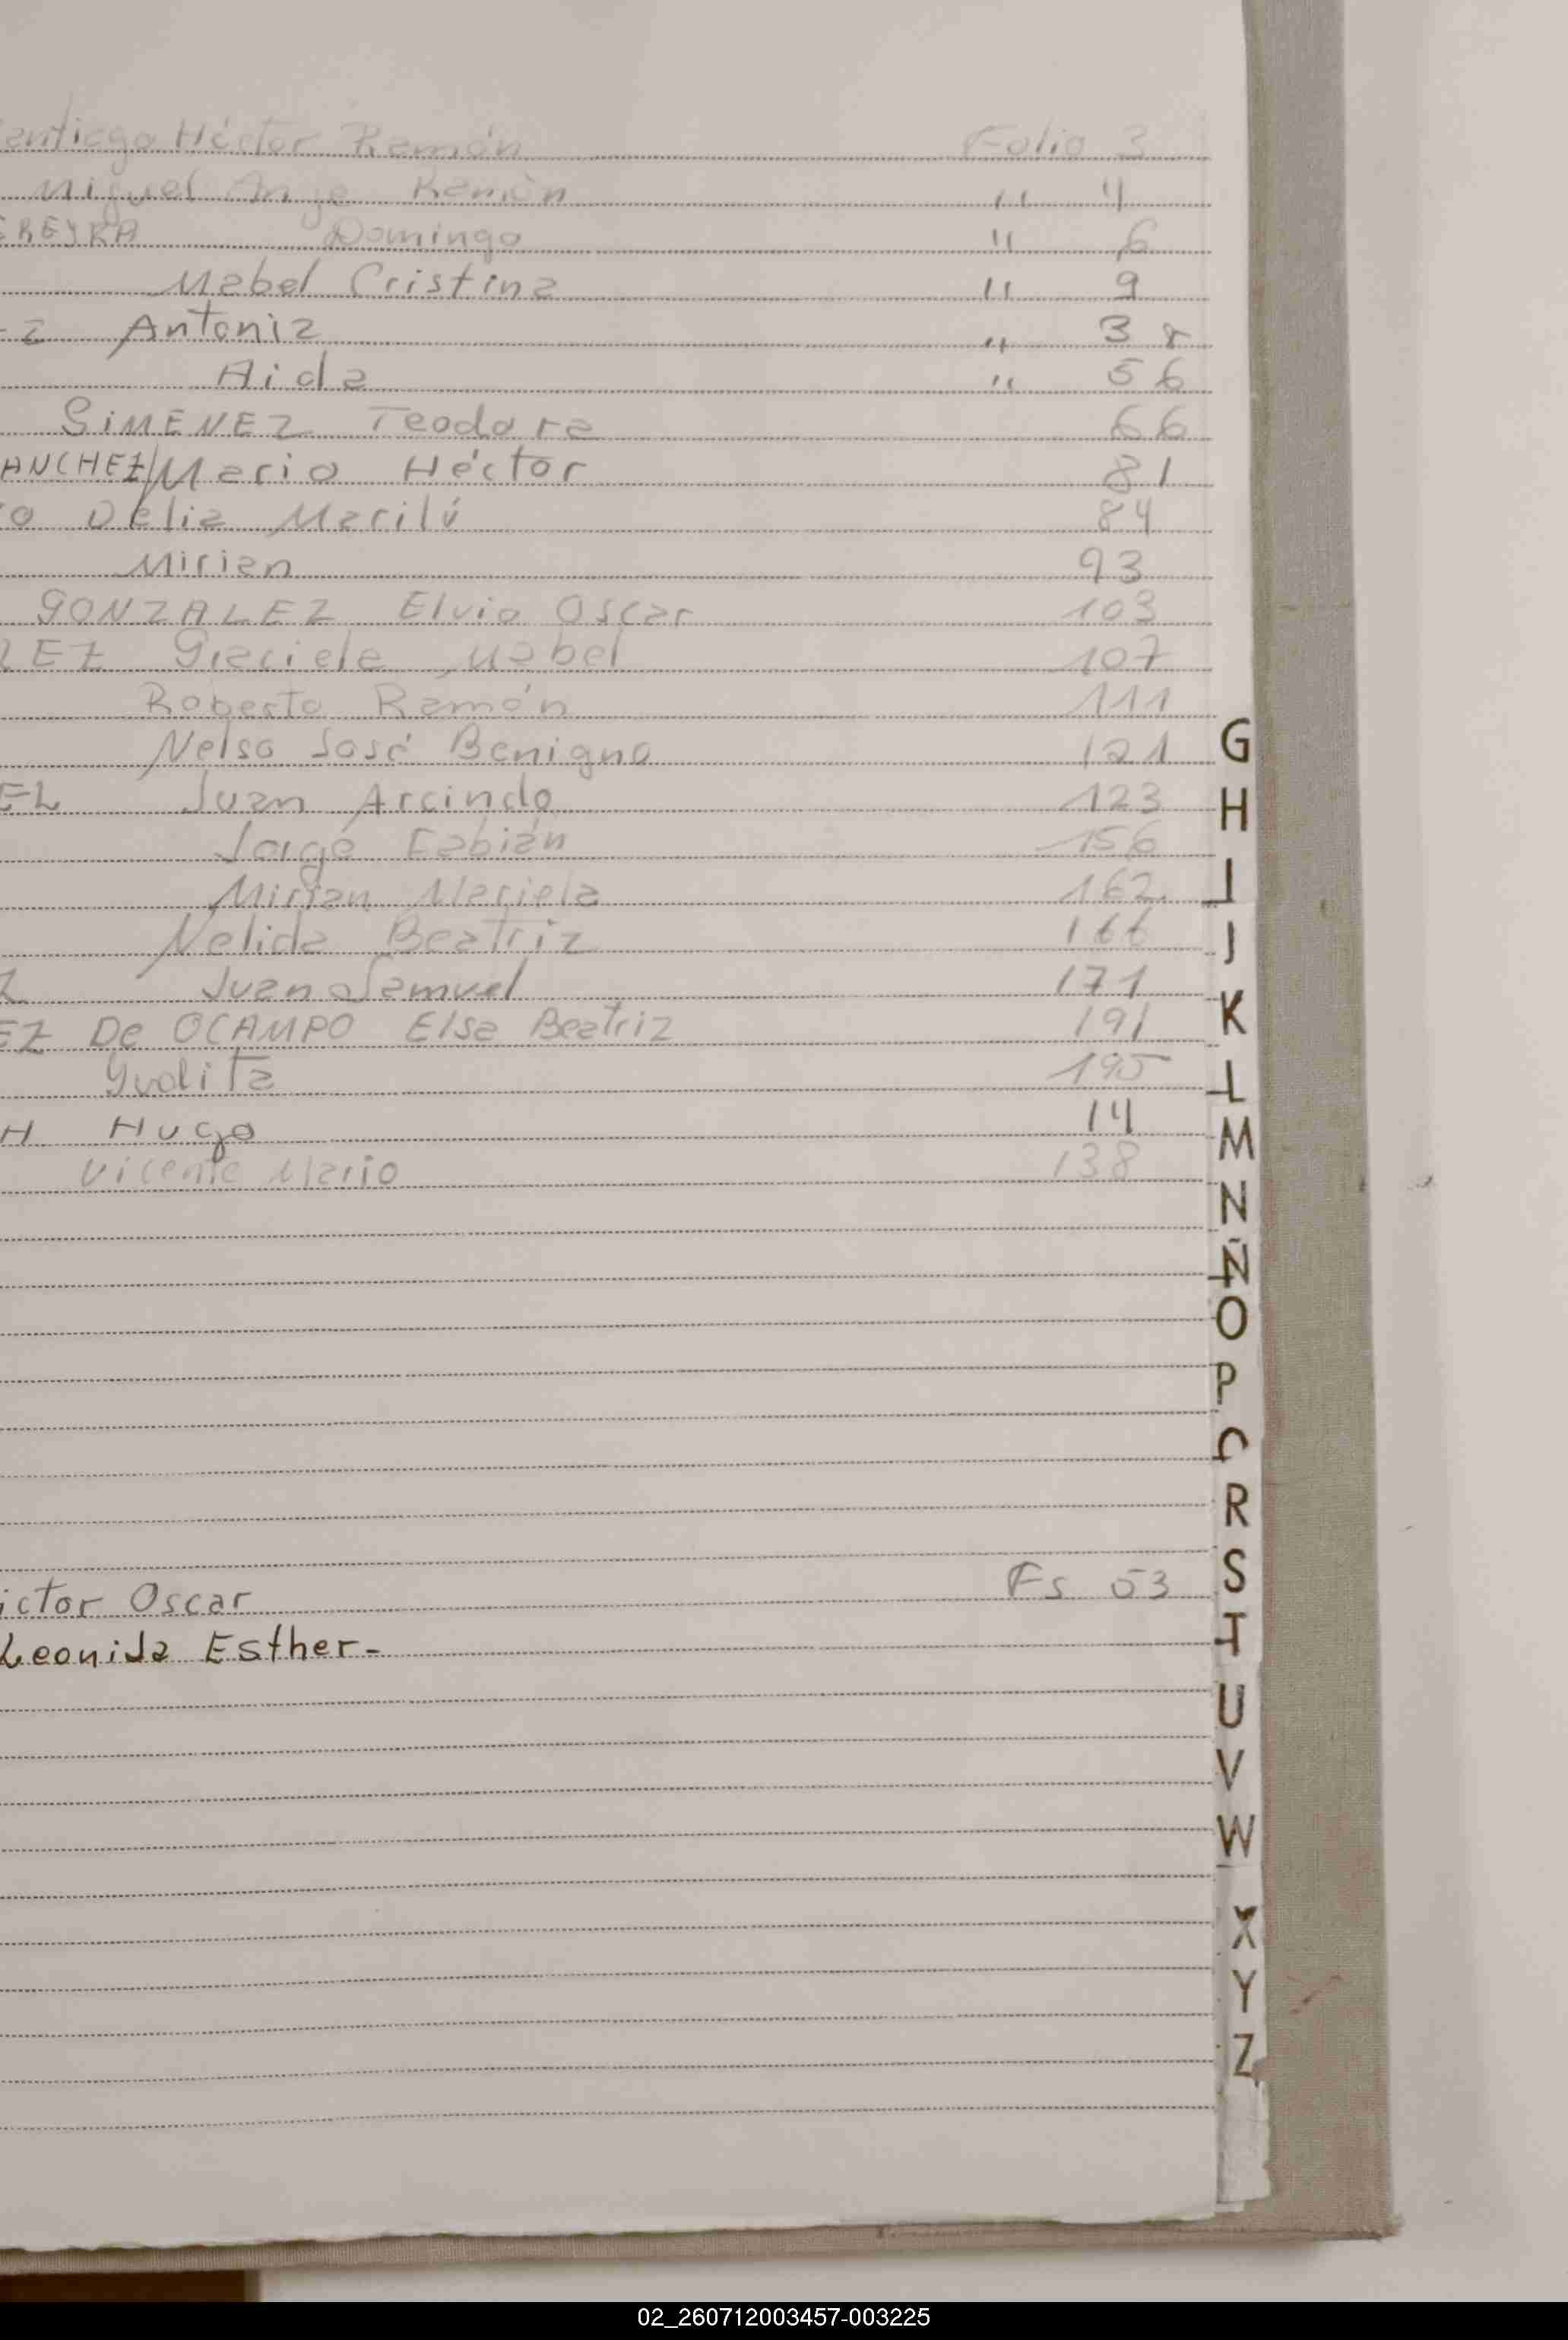 Santiago Héctor Ramón Folio 3
Miguel Ange Ramón " 4
EREYRA Domingo " 6
Mabel Cristina " 9
EZ Antonia " 38
Aida " 56
GIMENEZ Teodora 66
ANCHEZ Mario Héctor 81
O Delia Marilú 84
Mirian 93
GONZALEZ Elvio Oscar 103
LEZ Graciela Mabel 107
Roberto Ramón 111
Nelso José Benigno 121
EL Juan Arcindo 123
Jorge Fabián 156
Mirian Mariela 162
Nelida Beatriz 166
Z Juan Samuel 171
EZ De OCAMPO Elsa Beatriz 191
195
H Hugo 14
Vicente Mario 138
ictor Oscar Fs 53
Leonida Esther-
G
H
I
J
K
L
M
N
Ñ
O
P
R
S
T
U
V
W
X
Y
Z
02_260712003457-003225